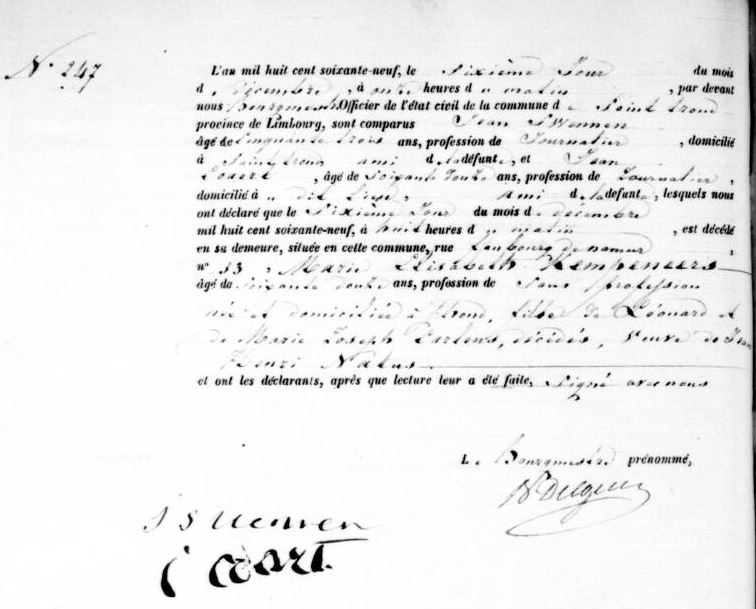 N° 247
L'an mil huit cent soixante-neuf, le Sixième Jour du mois
de Décembre, à onze heures du matin, par devant
nous Bourgmestre Officier de l'état civil de la commune de Saint trond
province de Limbourg, sont comparus Jean Swennen
âgé de Cinquante trois ans, profession de Journalier, domicilié
à Saint trond, ami de la défunte, et Jean
, âgé de Soixante ans, profession de Journalier,
domicilié à " dit Lieu, ami de la défunte, lesquels nous
ont déclaré que le Sixième Jour du mois de décembre
mil huit cent soixante-neuf, à huit heures du matin, est décédé
en sa demeure, située en cette commune, rue faubourg de namur,
n° 53, Marie Elisabeth Kempeneers
âgé de Soixante douze ans, profession de Sans profession
née et domiciliée à St trond, fille de Léonard et
de Marie Joseph Carlens, décédés, veuve de Jean
Henri Natus
et ont les déclarants, après que lecture leur a été faite, Signé avec nous
Le Bourgmestre prénommé,
J Swennen